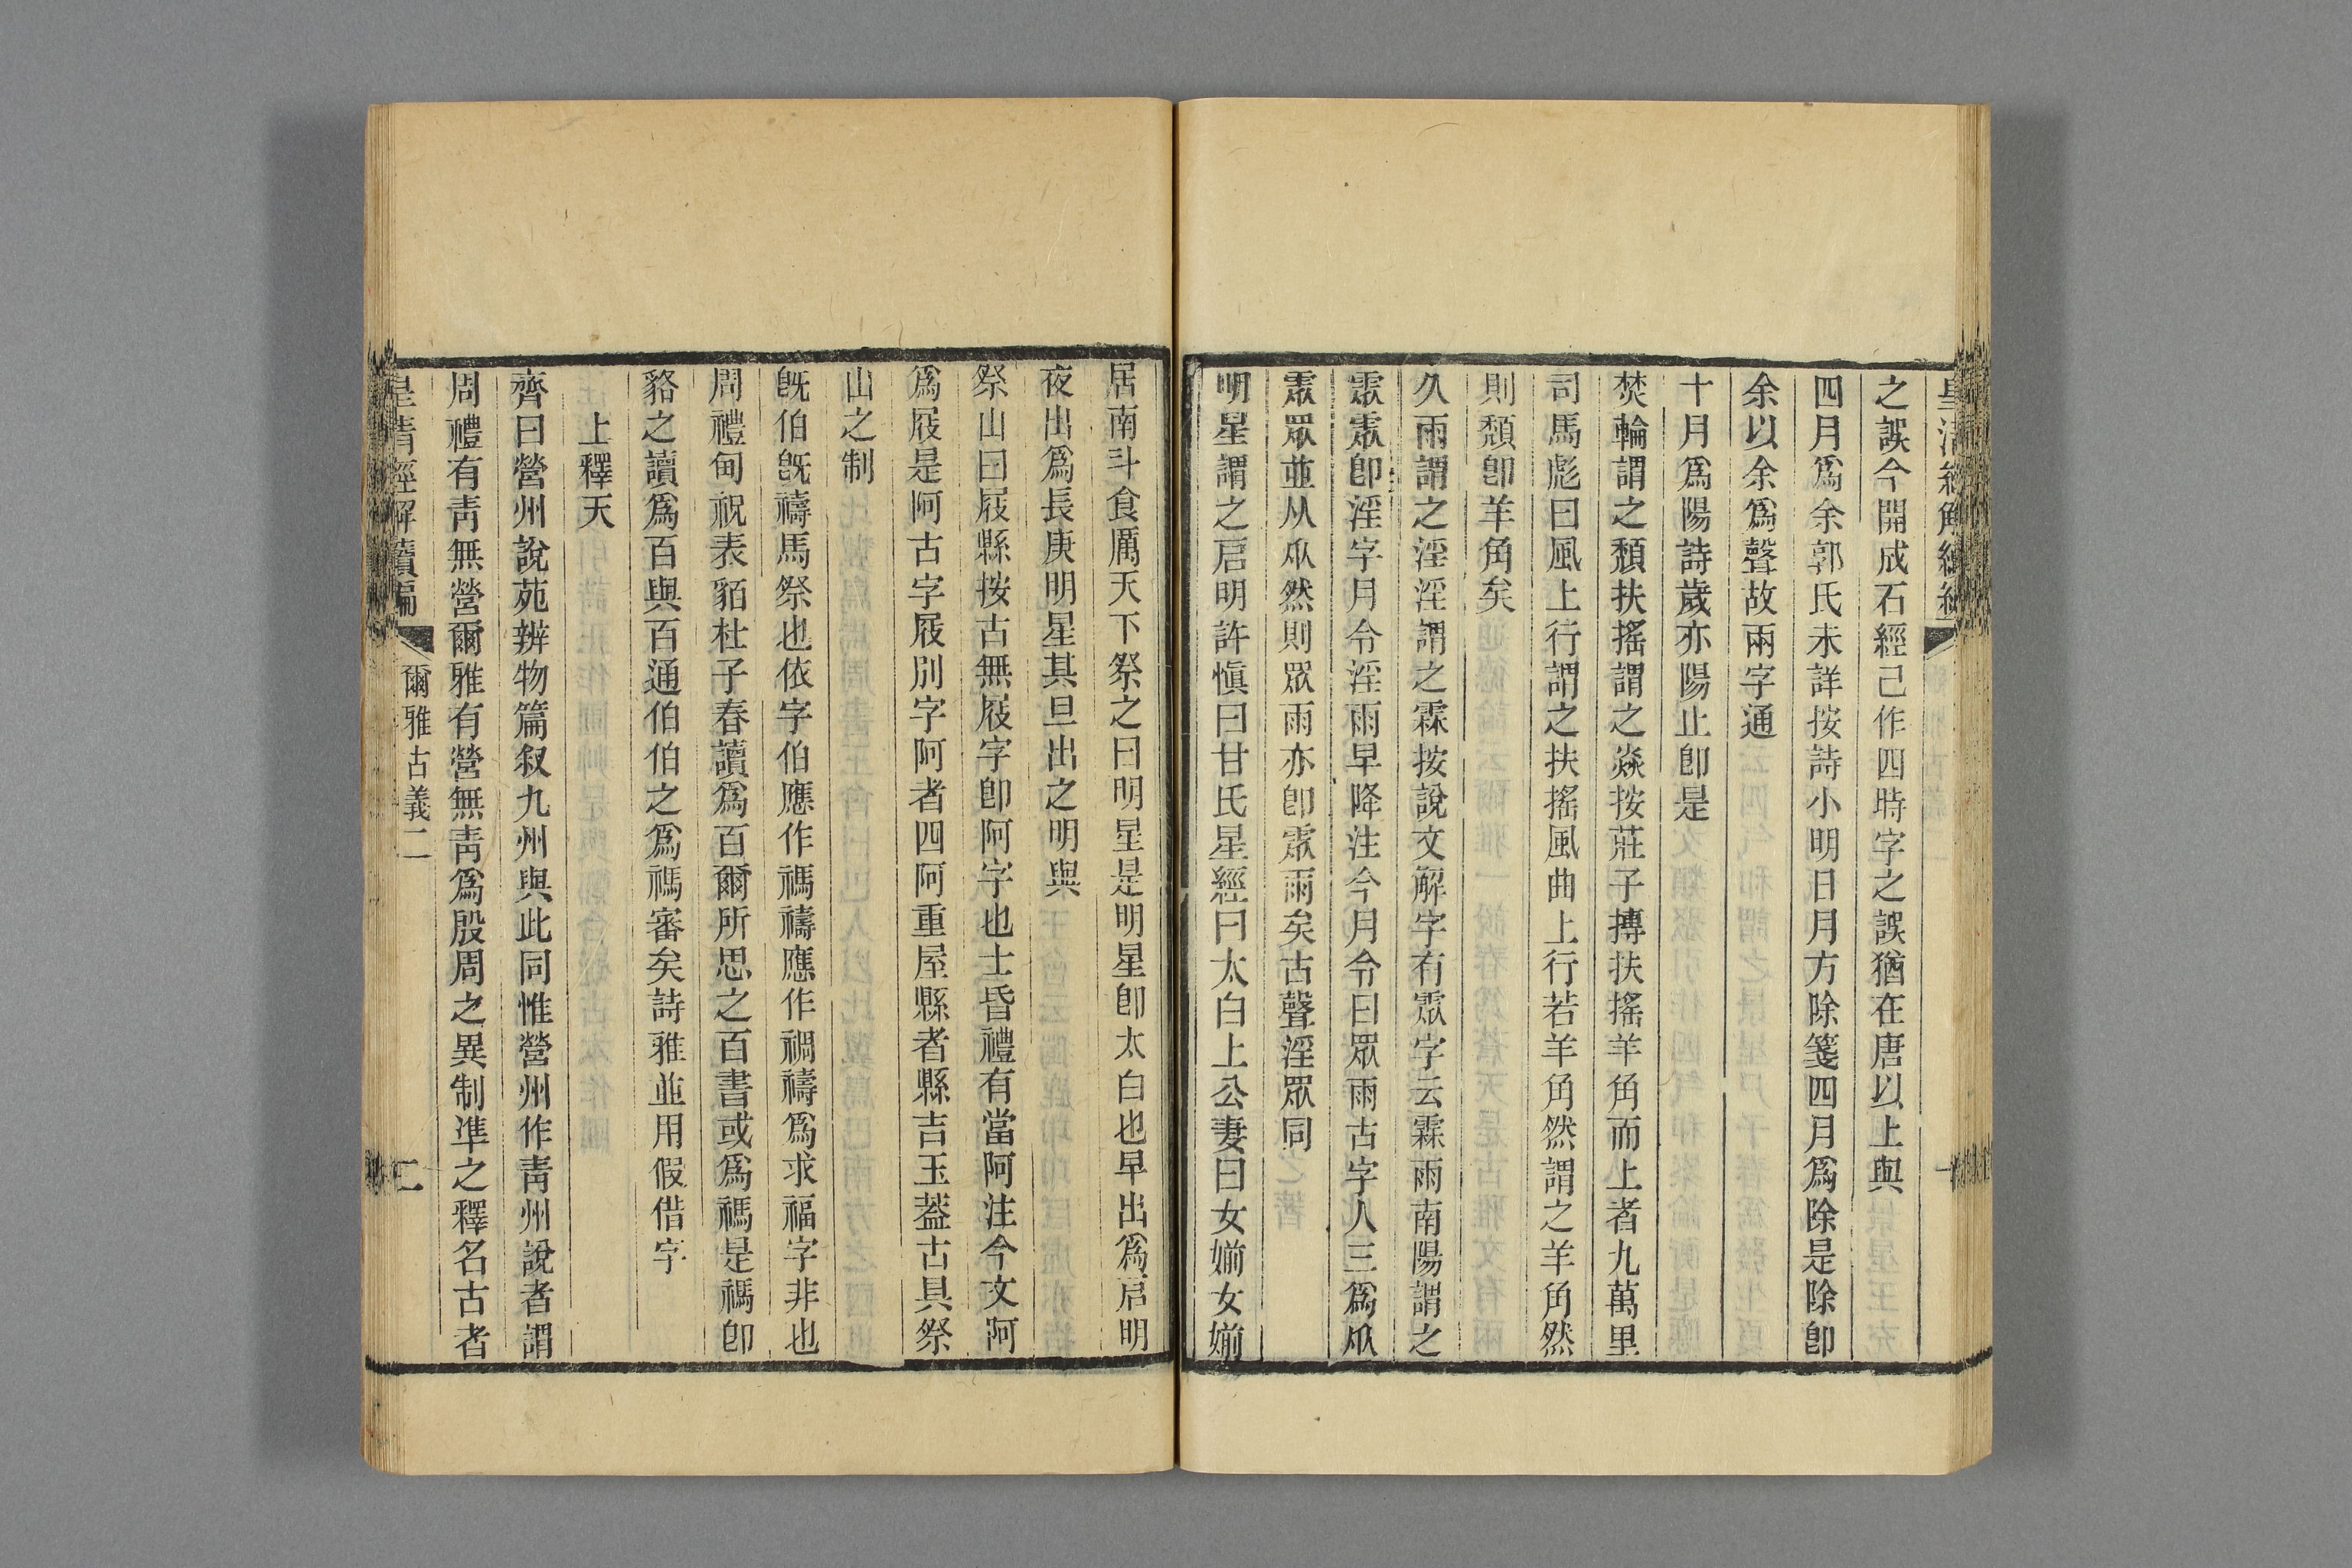 之誤今開成石經己作四時字之誤猶在唐以上與
四月爲余郭氏未詳按詩小明日月方除箋四月爲除是除卽
余以余爲聲故兩字通
十月爲陽詩歲亦陽止卽是
焚輪謂之穨扶搖謂之猋按莊子摶扶搖羊角而上者九萬里
司馬彪曰風上行謂之扶搖風曲上行若羊角然謂之羊角然
則穨卽羊角矣
久雨謂之淫淫謂之霖按說文解字有霥字云霖雨南陽謂之
霥霥卽淫字月令淫雨早降注今月令曰眾雨古字人三爲㐺
霥眾並从㐺然則眾雨亦卽霥雨矣古聲淫眾同
明星謂之启明許愼曰甘氏星經曰太白上公妻曰女媊女媊
居南斗食厲天下祭之曰明星是明星卽太白也早出爲启明
夜出爲長庚明星其旦出之明與
祭山曰屐縣按古無屐字卽阿字也士昏禮有當阿注今文阿
爲屐是阿古字屐別字阿者四阿重屋縣者縣吉玉葢古具祭
山之制
旣伯旣禱馬祭也依字伯應作禡禱應作禂禱爲求福字非也
周禮甸祝表貊杜子春讀爲百爾所思之百書或爲禡是禡卽
貉之讀爲百與百通伯伯之爲禡審矣詩雅並用假借字
上釋天
齊曰營州說苑辨物篇叙九州與此同惟營州作靑州說者謂
周禮有靑無營爾雅有營無靑爲殷周之異制準之釋名古者
皇清經解續編
爾雅古義二
二